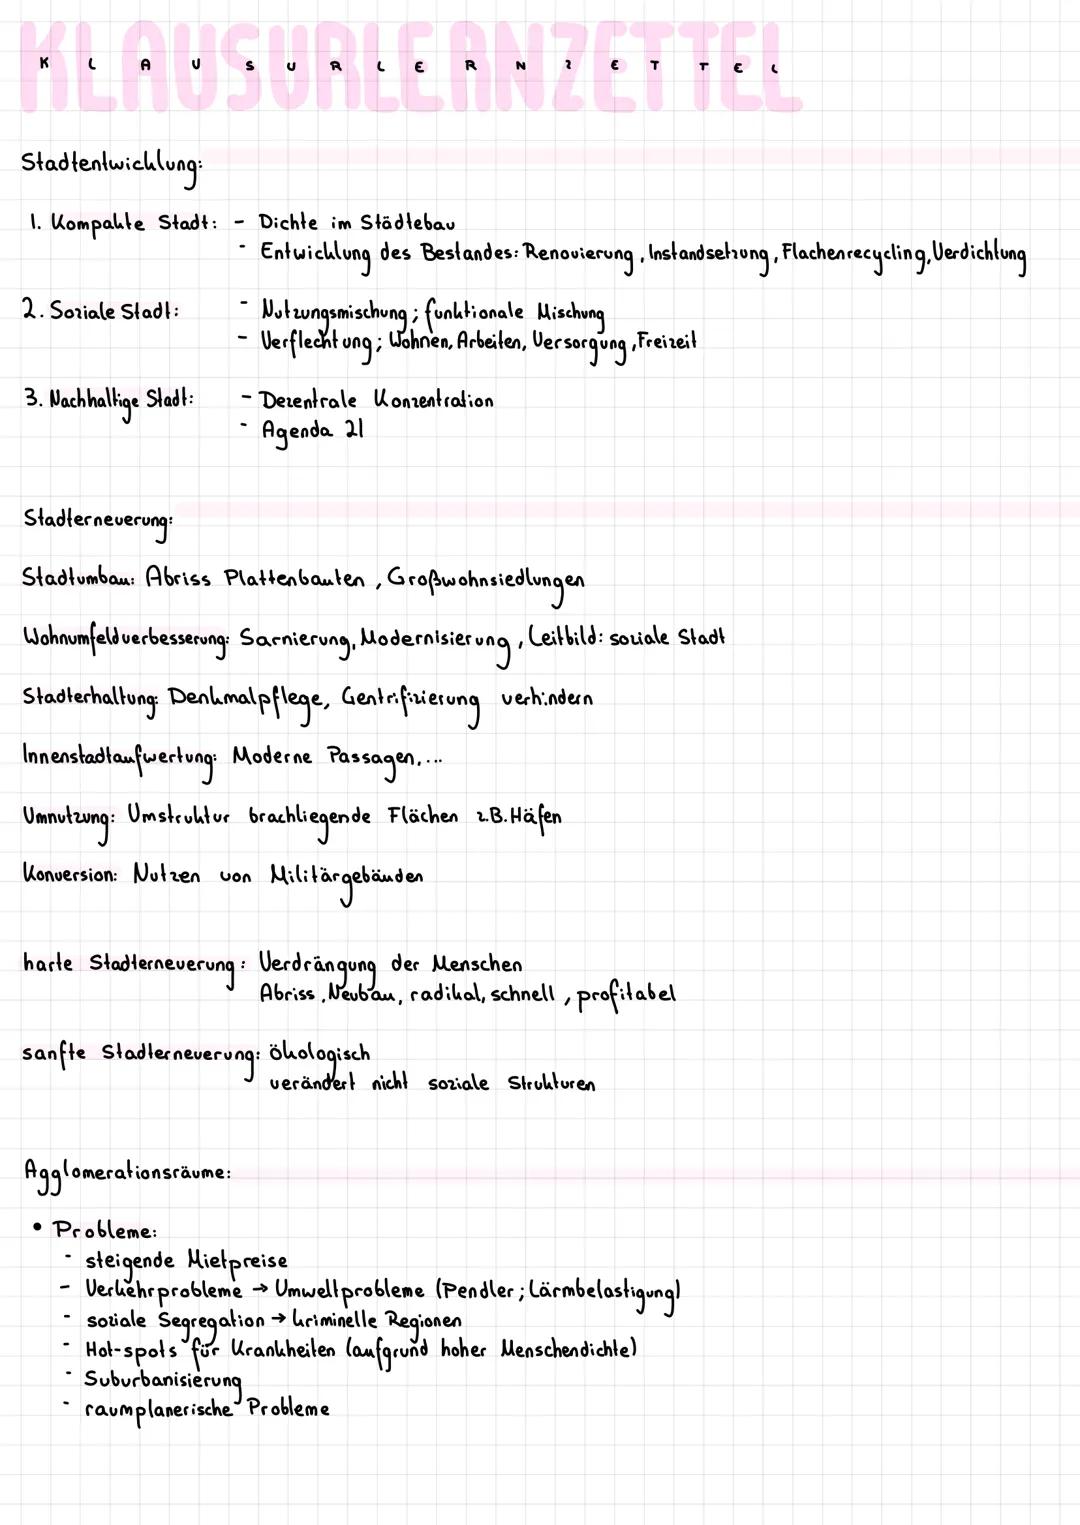 KLAUSURLEANZETTEL
K L A U S U R L E R N Z E T T E L
Stadtentwicklung:
1. Kompakte Stadt: - Dichte im Städtebau
- Entwicklung des Bestandes: Renovierung, Instandsetzung, Flachenrecycling, Verdichtung
2. Soziale Stadt: - Nutzungsmischung; funktionale Mischung
- Verflechtung; Wohnen, Arbeiten, Versorgung, Freizeit
3. Nachhaltige Stadt: - Dezentrale Konzentration
- Agenda 21
Stadterneuerung:
Stadtumbau: Abriss Plattenbauten, Großwohnsiedlungen
Wohnumfeldverbesserung: Sarnierung, Modernisierung, Leitbild: soziale Stadt
Stadterhaltung: Denkmalpflege, Gentrifizierung verhindern
Innenstadtaufwertung: Moderne Passagen, ...
Umnutzung: Umstruktur brachliegende Flächen z.B. Häfen
Konversion: Nutzen von Militärgebäuden
harte Stadterneuerung: Verdrängung der Menschen
Abriss, Neubau, radikal, schnell, profitabel
sanfte Stadterneuerung: ökologisch
verändert nicht soziale Strukturen
Agglomerationsräume:
• Probleme:
- steigende Mietpreise
- Verkehrprobleme → Umweltprobleme (Pendler; Lärmbelastigung)
- soziale Segregation → kriminelle Regionen
- Hot-spots für Krankheiten (aufgrund hoher Menschendichte)
- Suburbanisierung
- raumplanerische Probleme